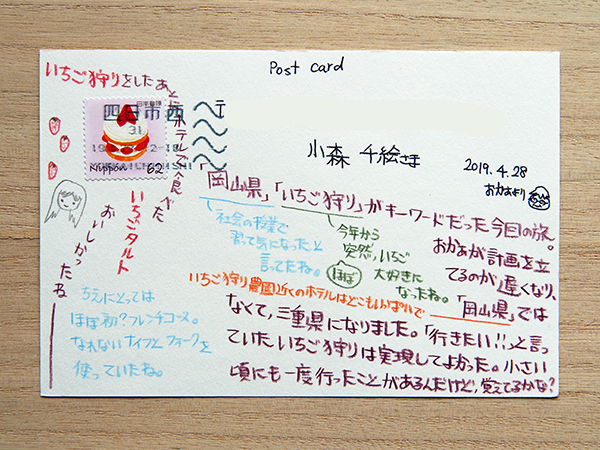 Post card
いちご狩りをしたあと
にホテルで食べた
いちごタルト
おいしかったね
日本郵便
四日市西
31
YOKKAICHINISHI
Nippon 62
〒
小森 千絵さま
2019.4.28
おかあより
「岡山県」「いちご狩り」がキーワードだった今回の旅。
おかあが計画を立
てるのが遅くなり、
社会の授業で
習って気になったと
言ってたね。
今年から
突然、いちご
ほぼ
大好きに
なったね。
いちご狩り農園近くのホテルはどこもいっぱいで
「岡山県」では
なくて、三重県になりました。「行きたい!!」と言っ
ていたいちご狩りは実現してよかった。小さい
頃にも一度行ったことがあるんだけど、覚えてるかな?
ちえにとっては
ほぼ初?フレンチコース。
なれないナイフとフォークを
使っていたね。